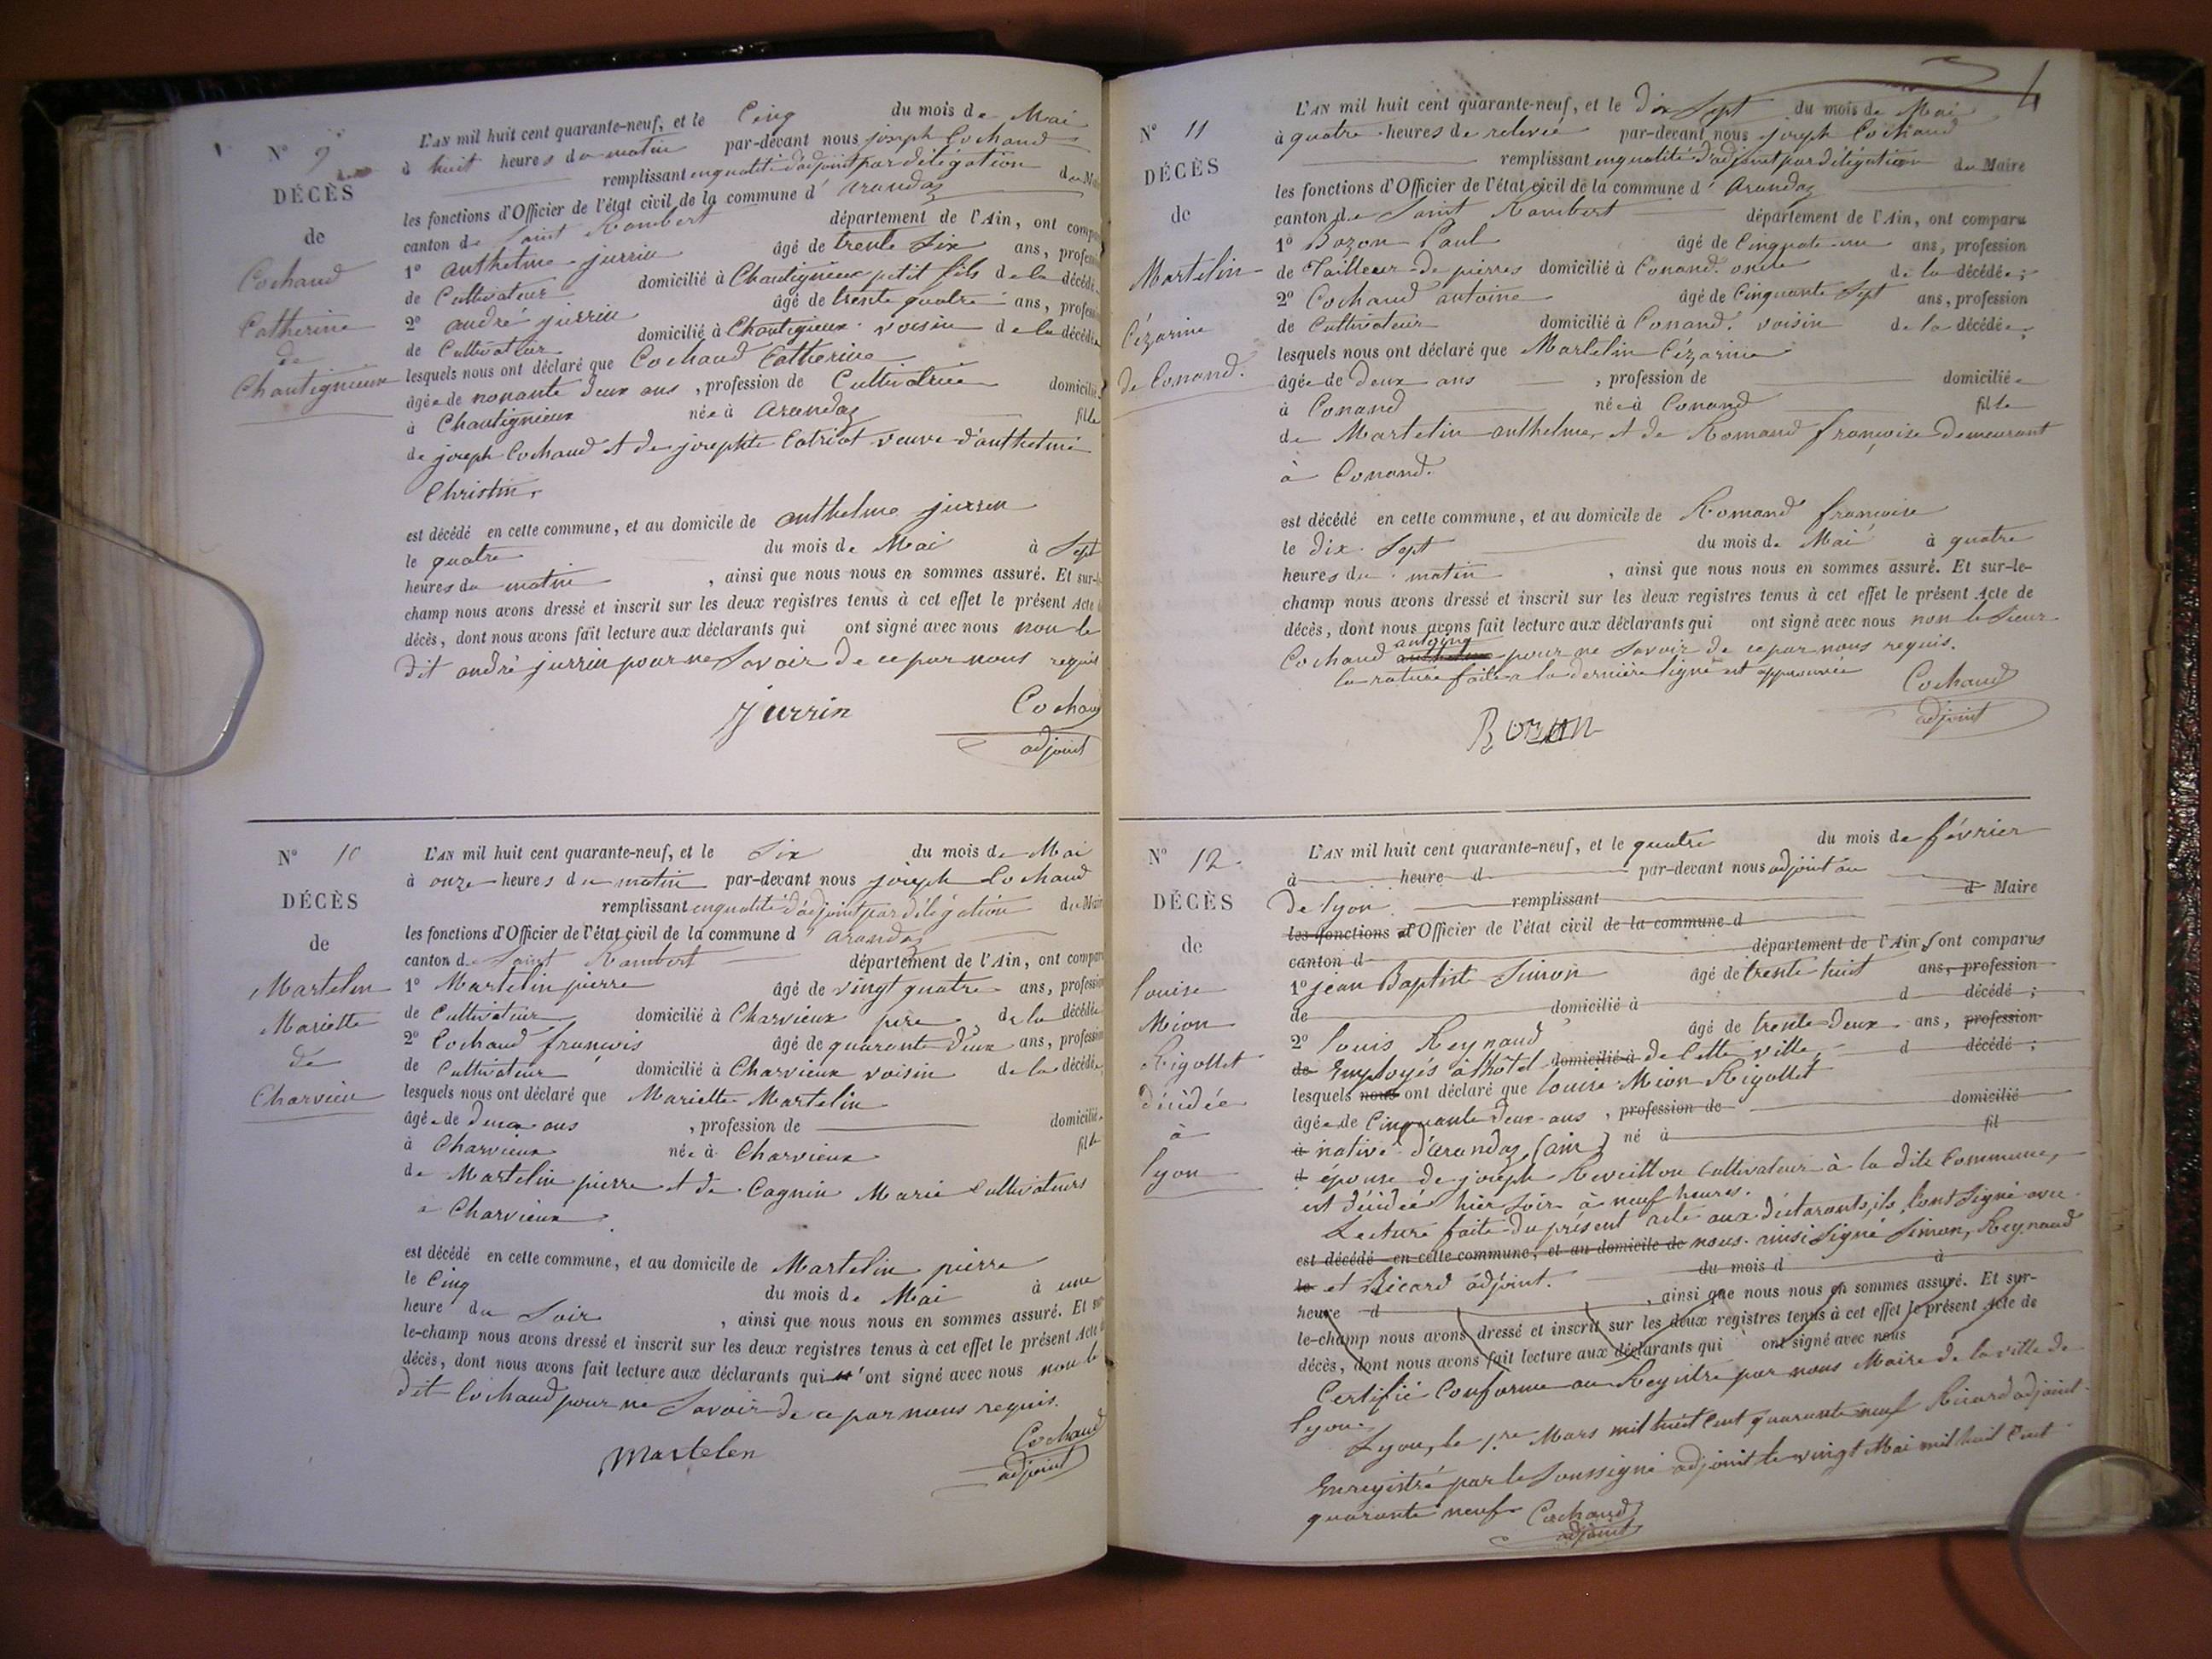 N° 9
DÉCÈS
de
Cochand
Catherine
de
Chantignieux
L'AN mil huit cent quarante-neuf, et le Cinq du mois de Mai
à huit heures du matin par-devant nous joseph Cochand
remplissant en qualité d'adjoint par délégation du Mai
les fonctions d'Officier de l'état civil de la commune d' arandaz
canton de Saint Rambert département de l'Ain, ont compa
1° anthelme jurrin âgé de trente Six ans, profess
de Cultivateur domicilié à Chantignieux petit fils de la décédé
2° andré jurrin âgé de trente quatre ans, profess
de Cultivateur domicilié à Chantignieux voisin de la décédée
lesquels nous ont déclaré que Cochand Catherine
âgée de nonante deux ans, profession de Cultivatrice domiciliée
à Chantignieux née à arandaz fille
de joseph Cochand et de josephte Catriot veuve d'anthelme
Christin.
est décédé en cette commune, et au domicile de anthelme jurrin
le quatre du mois de Mai à Sept
heures du matin, ainsi que nous nous en sommes assuré. Et sur-le-
champ nous avons dressé et inscrit sur les deux registres tenus à cet effet le présent Acte d
décès, dont nous avons fait lecture aux déclarants qui ont signé avec nous non le
dit andré jurrin pour ne Savoir de ce par nous requis
jurrin Cochand
adjoint
N° 10
DÉCÈS
de
Martelin
Mariette
de
Charvieu
L'AN mil huit cent quarante-neuf, et le Six du mois de Mai
à onze heures du matin par-devant nous joseph Cochand
remplissant en qualité d'adjoint par délégation du Mair
les fonctions d'Officier de l'état civil de la commune d' arandaz
canton de Saint Rambert département de l'Ain, ont compar
1° Martelin pierre âgé de vingt quatre ans, profession
de Cultivateur domicilié à Charvieux père de la décédée
2° Cochand francois âgé de quarante deux ans, profession
de Cultivateur domicilié à Charvieux voisin de la décédée
lesquels nous ont déclaré que Mariette Martelin
âgée de deux ans, profession de domiciliée
à Charvieux née à Charvieux fille
de Martelin pierre et de Cagnin Marie Cultivateurs
a Charvieux.
est décédé en cette commune, et au domicile de Martelin pierre
le Cinq du mois de Mai à une
heure du Soir, ainsi que nous nous en sommes assuré. Et sur
le-champ nous avons dressé et inscrit sur les deux registres tenus à cet effet le présent Acte d
décès, dont nous avons fait lecture aux déclarants qui ont signé avec nous non le
dit Cochand pour ne Savoir de ce par nous requis.
Martelen Cochand
adjoint
N° 11
DÉCÈS
de
Martelin
Cézarine
de Conand.
L'AN mil huit cent quarante-neuf, et le dix Sept du mois de Mai
à quatre heures de relevié par-devant nous joseph Cochand
remplissant en qualité d'adjoint par délégation du Maire
les fonctions d'Officier de l'état civil de la commune d' Arandaz
canton de Saint Rambert département de l'Ain, ont comparu
1° Bozon Paul âgé de Cinquante un ans, profession
de Tailleur de pierres domicilié à Conand. oncle de la décédée;
2° Cochand antoine âgé de Cinquante Sept ans, profession
de Cultivateur domicilié à Conand. voisin de la décédée;
lesquels nous ont déclaré que Martelin Cézarine
âgée de Deux ans, profession de domiciliée
à Conand née à Conand fille
de Martelin anthelme et de Romand françoise demeurant
à Conand.
est décédé en cette commune, et au domicile de Romand françoise
le dix Sept du mois de Mai à quatre
heures du matin, ainsi que nous nous en sommes assuré. Et sur-le-
champ nous avons dressé et inscrit sur les deux registres tenus à cet effet le présent Acte de
décès, dont nous avons fait lecture aux déclarants qui ont signé avec nous non le Sieur
Cochand antoine pour ne Savoir de ce par nous requis.
la rature faite a la dernière ligne est approuvée
Cochand
adjoint
Bozon
N° 12
DÉCÈS
de
louise
Mion
Rigollet
décédée
à
lyon
L'AN mil huit cent quarante-neuf, et le quatre du mois de février
à heure d par-devant nous adjoint au d Maire
De lyon. remplissant
les fonctions d'Officier de l'état civil de la commune d
canton d département de l'Ain Sont comparus
1° jean Baptiste Simon âgé de trente huit ans, profession
de domicilié à d décédé;
2° louis Reynaud âgé de trente-deux ans, profession
de Employés à l'hôtel domicilié à de Cette ville, d décédé;
lesquels nous ont déclaré que louise Mion Rigollet
âgée de Cinquante deux ans, profession de domicilié
à native d'arandaz, (ain) né à fil
d épouse de joseph Reveillon Cultivateur à la dite Commune,
est décédée hier Soir à neuf heures.
Lecture faite du présent acte aux déclarants, ils l'ont Signé avec
est décédé en cette commune, et au domicile de nous. ainsi Signé Simon, Reynaud
le et Ricard adjoint. du mois d à
heure d, ainsi que nous nous en sommes assuré. Et sur-
le-champ nous avons dressé et inscrit sur les deux registres tenus à cet effet le présent Acte de
décès, dont nous avons fait lecture aux déclarants qui ont signé avec nous
Certifié Conforme au Registre par nous Maire de la ville de
lyon.
Lyon, le 1re Mars mil huit Cent quarante neuf Ricard adjoint.
Enregistré par le Soussigné adjoint le vingt Mai mil huit Cent
quarante neuf Cochand
adjoint